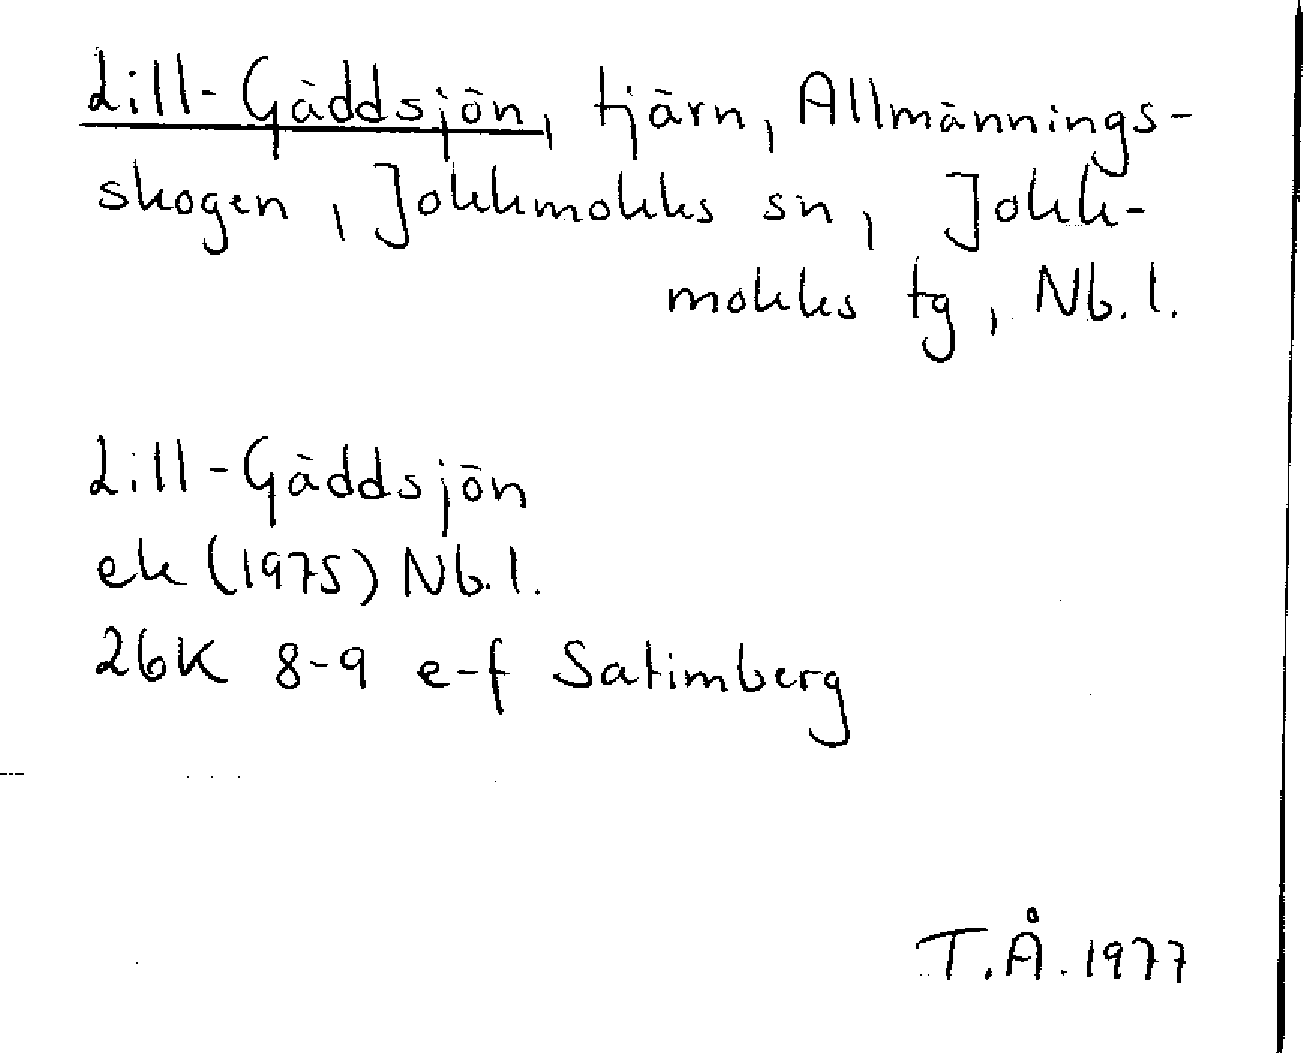 Lill-Gäddsjön, tjärn, Allmännings-
skogen, Jokkmokks sn, Jokk-
mokks tg, Nb.l.
Lill-Gäddsjön
ek (1975) Nb.l.
26K 8-9 e-f Satimberg
T.Å. 1977